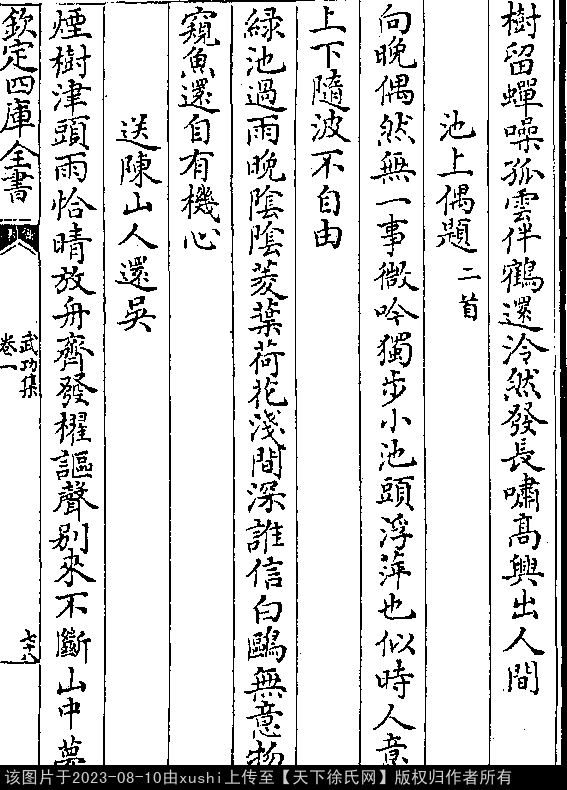 樹留蟬噪孤雲伴鶴還泠然發長嘯髙興出人間
池上偶題二首
向晚偶然無一事微吟獨步小池頭浮萍也似時人意
上下隨波不自由
緑池過雨晚陰陰菱葉荷花淺間深誰信白鷗無意物
窺魚還自有機心
送陳山人還吳
煙樹津頭雨恰晴放舟齊發櫂謳聲别來不斷山中夢
欽定四庫全書
武功集
卷一
七十八
该图片于2023-08-10由xushi上传至【天下徐氏网】版权归作者所有